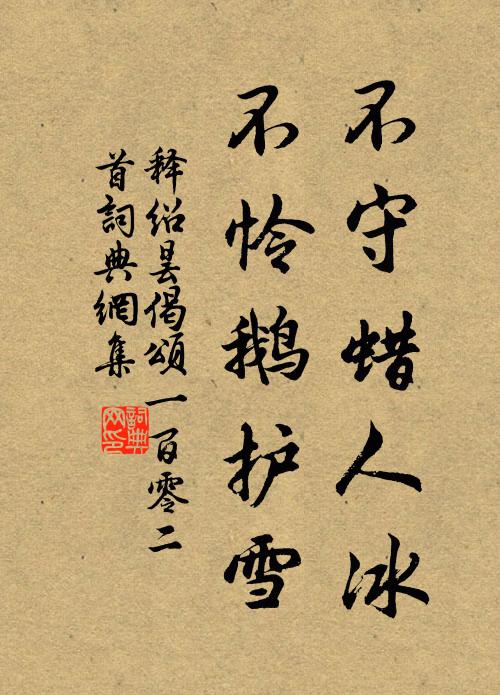 不守蜡人冰
不怜鹅护雪
释绍昙偈颂一百零二
首詞典網集
詞典网印